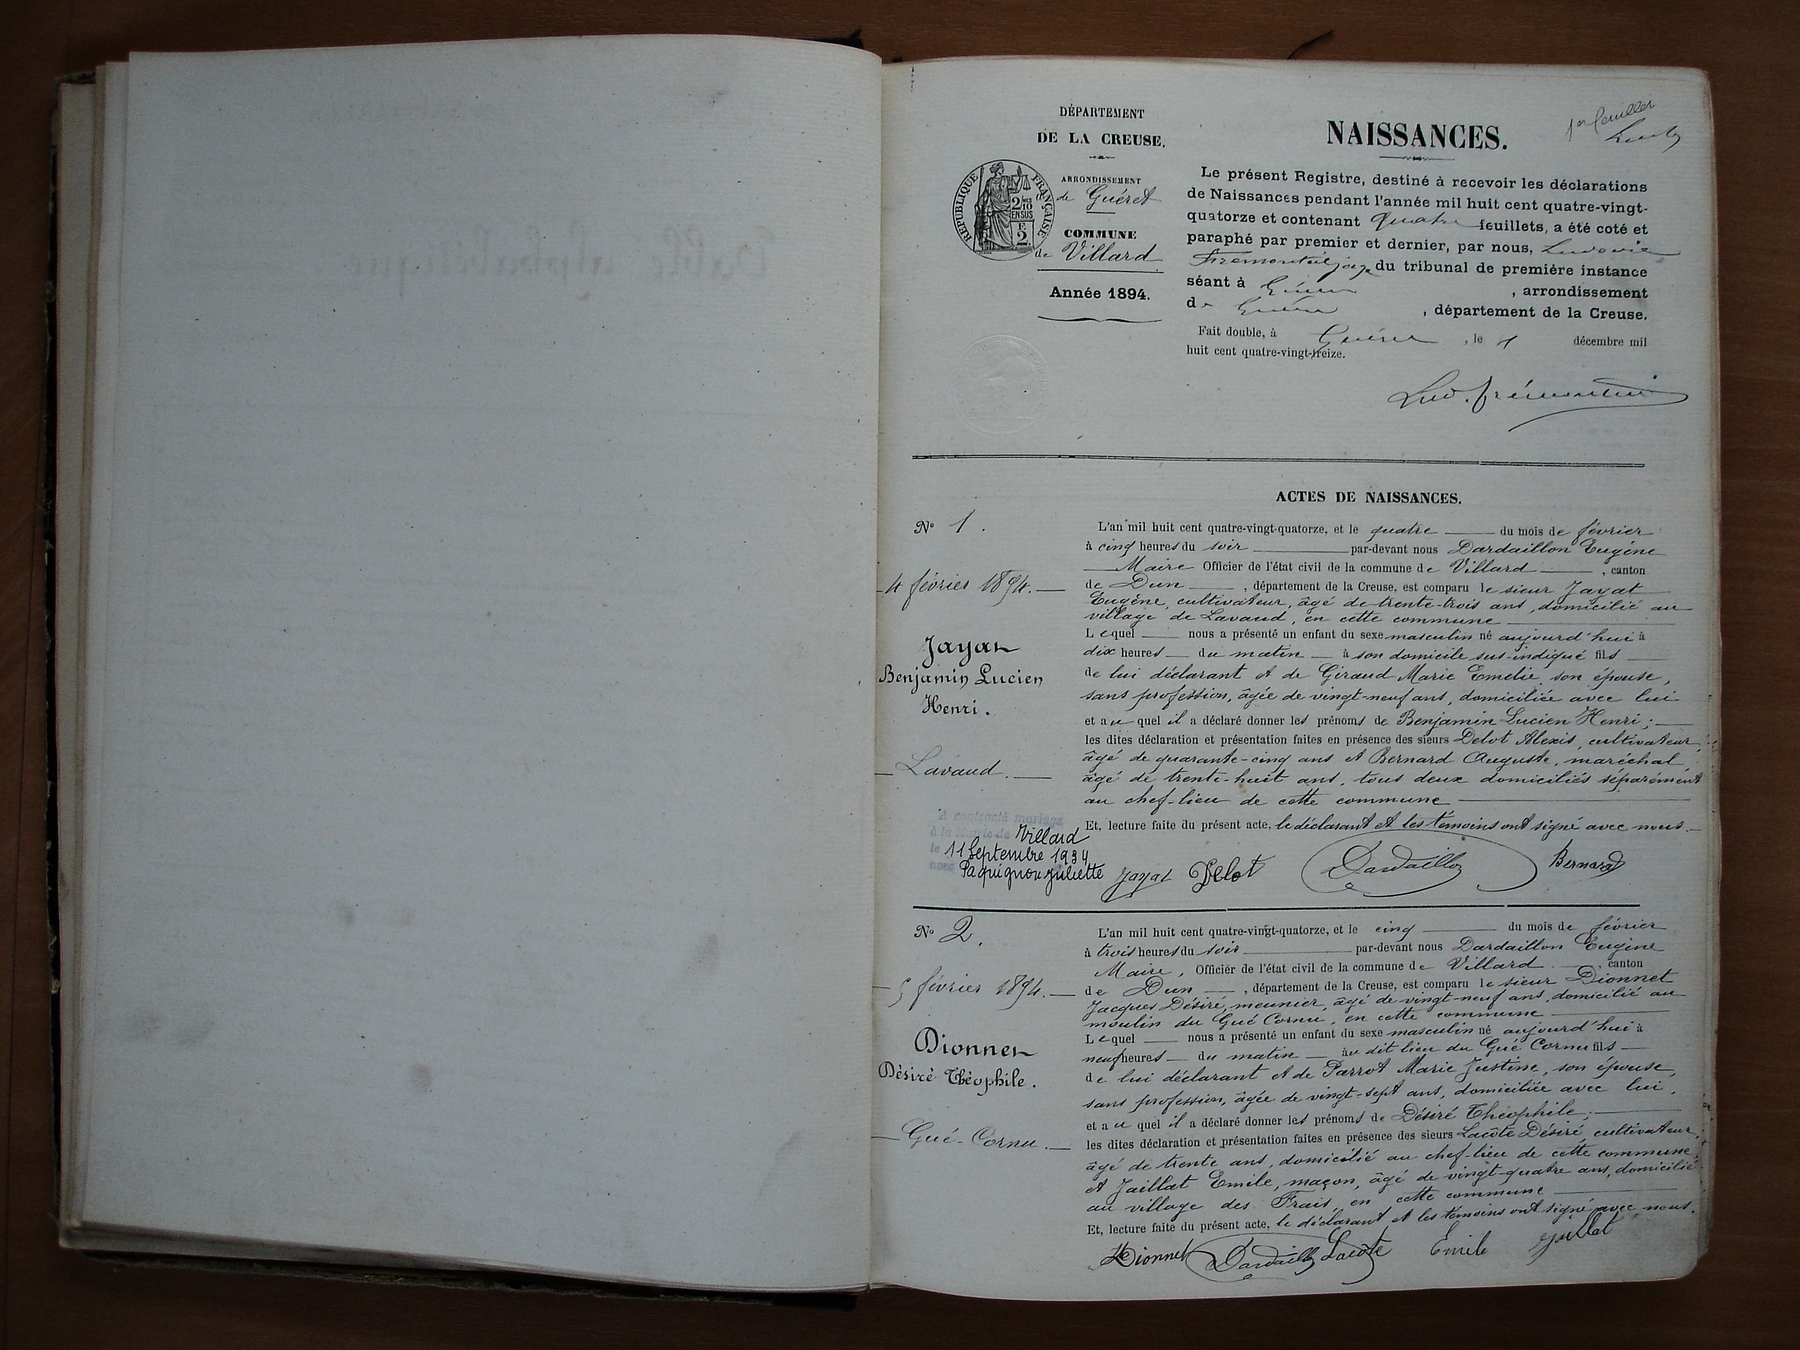 DÉPARTEMENT
DE LA CREUSE.
ARRONDISSEMENT
de Guéret
COMMUNE
de Villard
Année 1894.
RÉPUBLIQUE FRANÇAISE
2/10
EN SUS
2 F.
1er feuillet
NAISSANCES.
Le présent Registre, destiné à recevoir les déclarations
de Naissances pendant l'année mil huit cent quatre-vingt-
quatorze et contenant quatre feuillets, a été coté et
paraphé par premier et dernier, par nous, Ludovic
juge du tribunal de première instance
séant à Guéret, arrondissement
de Guéret, département de la Creuse.
Fait double, à Guéret, le 1 décembre mil
huit cent quatre-vingt-treize.
ACTES DE NAISSANCES.
No 1.
4 février 1894.
Jayat
Benjamin Lucien
Henri.
Lavaud.
A contracté mariage
à la Mairie de Villard
le 11 Septembre 1934
avec Paquignon Juliette
L'an mil huit cent quatre-vingt-quatorze, et le quatre du mois de février
à cinq heures du soir par-devant nous Dardaillon Eugène
Maire Officier de l'état civil de la commune de Villard, canton
de Dun, département de la Creuse, est comparu le sieur Jayat
Eugène, cultivateur, âgé de trente-trois ans, domicilié au
village de Lavaud, en cette commune
Lequel nous a présenté un enfant du sexe masculin né aujourd'hui à
dix heures du matin à son domicile sus-indiqué fils
de lui déclarant et de Giraud Marie Emelie, son épouse,
sans profession, âgée de vingt-neuf ans, domiciliée avec lui
et au quel il a déclaré donner les prénoms de Benjamin Lucien Henri ;
les dites déclaration et présentation faites en présence des sieurs Delot Alexis, cultivateur,
âgé de quarante-cinq ans et Bernard Auguste, maréchal,
âgé de trente-huit ans, tous deux domiciliés séparément
au chef-lieu de cette commune
Et, lecture faite du présent acte, le déclarant et les témoins ont signé avec nous.
Jayat Delot Dardaillon Bernard
No 2.
5 février 1894.
Dionnet
Désiré Théophile.
Gué-Cornu.
L'an mil huit cent quatre-vingt-quatorze, et le cinq du mois de février
à trois heures du soir par-devant nous Dardaillon Eugène
Maire, Officier de l'état civil de la commune de Villard, canton
de Dun, département de la Creuse, est comparu le sieur Dionnet
Jacques Désiré, meunier, âgé de vingt-neuf ans, domicilié au
moulin du Gué Cornu, en cette commune
Lequel nous a présenté un enfant du sexe masculin né aujourd'hui à
neuf heures du matin au dit lieu du Gué Cornu fils
de lui déclarant et de Parrot Marie Justine, son épouse,
sans profession, âgée de vingt-sept ans, domiciliée avec lui,
et au quel il a déclaré donner les prénoms de Désiré Théophile ;
les dites déclaration et présentation faites en présence des sieurs Lacôte Désiré, cultivateur,
âgé de trente ans, domicilié au chef-lieu de cette commune
et Jaillat Emile, maçon, âgé de vingt-quatre ans, domicilié
au village des Frais, en cette commune
Et, lecture faite du présent acte, le déclarant et les témoins ont signé avec nous.
Dionnet Dardaillon Lacôte Emile Jaillat